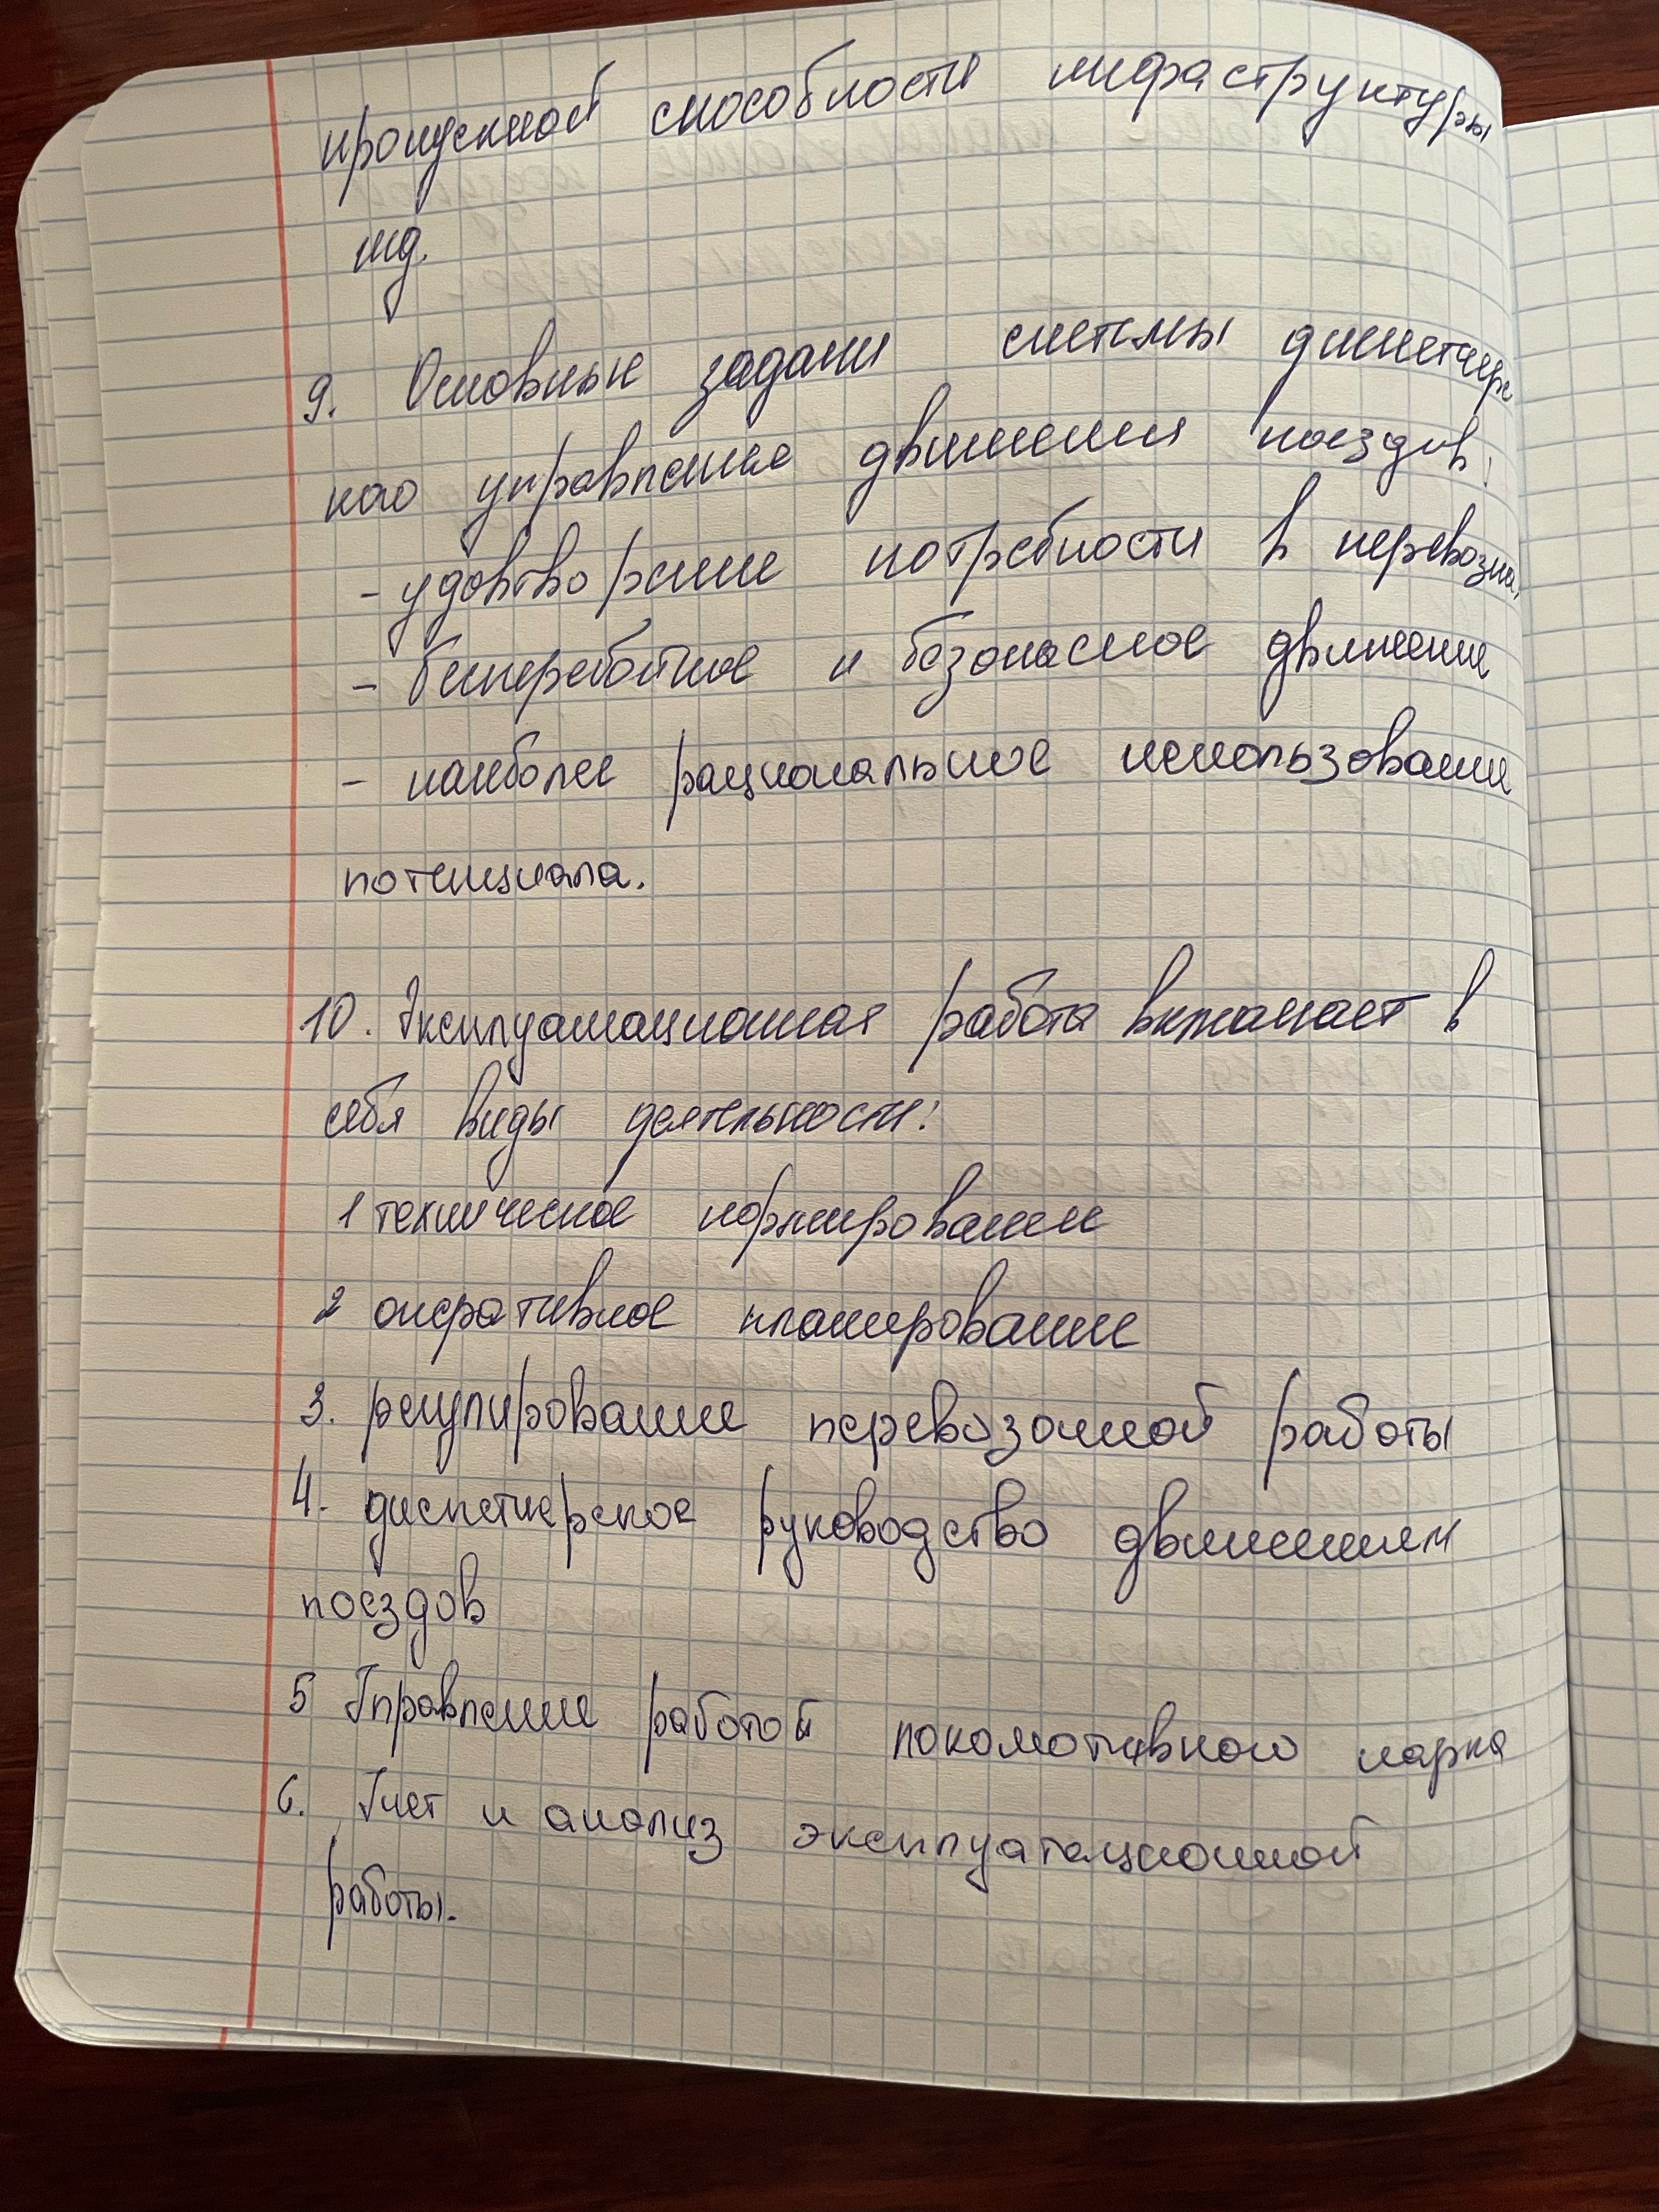 пропускной способности инфраструктуры
жд.
9. Основные задачи системы диспетчерс
кого управления движения поездов:
- удовтворение потребности в перевозка
- бесперебойное и безопасное движение
- наиболее рациональное использование
потенциала.
10. Эксплуатационная работа включает в
себя виды деятельности:
1 техническое нормирование
2 оперативное планирование
3. регулирование перевозочной работы
4. диспетчерское руководство движением
поездов
5 Управление работой локомотивного парка
6. Учет и анализ эксплуатационной
работы.